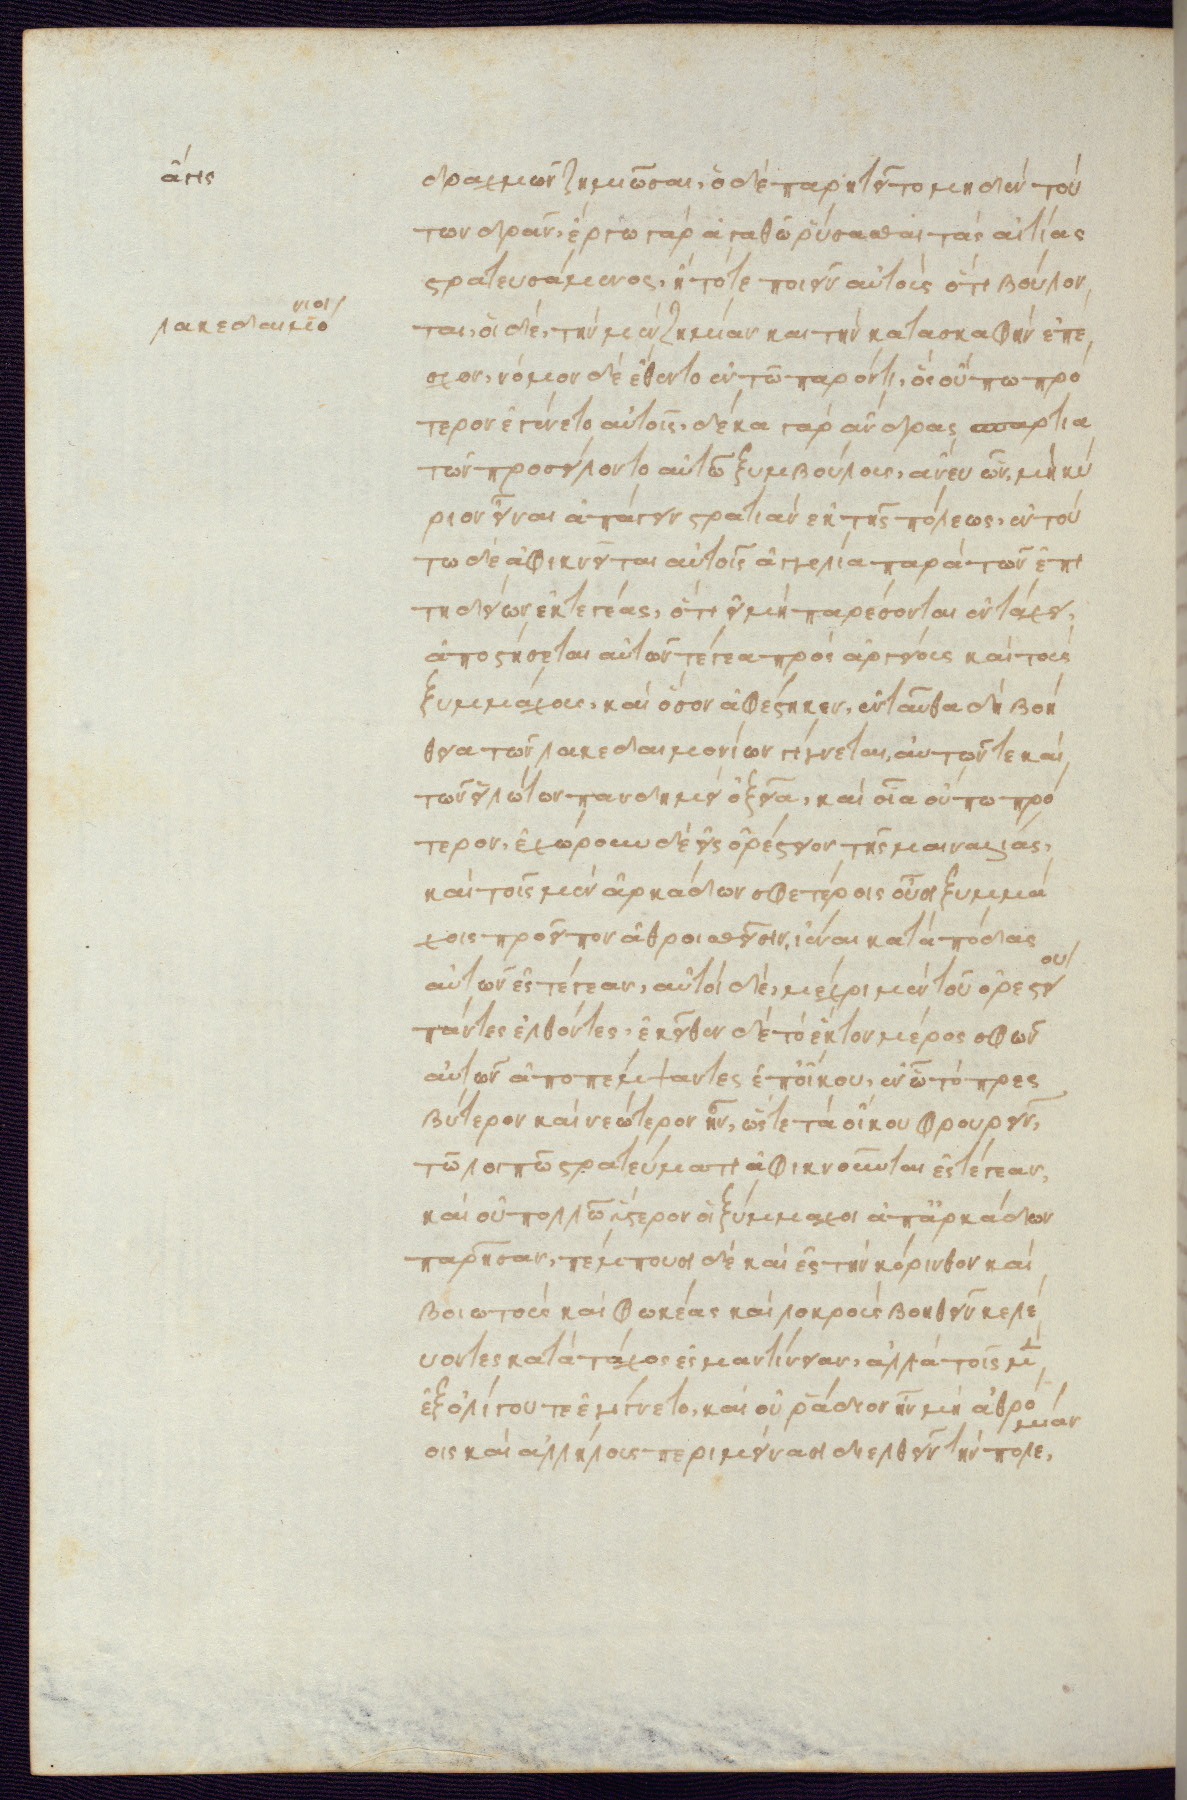 ἆγις
δραχμῶν ζημιῶσαι, ὁ δὲ παρῃτεῖτο μηδὲν τού
των δρᾶν, ἔργῳ γὰρ ἀγαθῷ ῥύσασθαι τὰς αἰτίας
στρατευσάμενος, ἢ τότε ποιεῖν αὐτοὺς ὅτι βούλον
νιοι
λακεδαιμο
ται, οἱ δὲ, τὴν μὲν ζημίαν καὶ τὴν κατασκαφὴν ἐπέ
σχον, νόμον δὲ ἔθεντο ἐν τῷ παρόντι, ὃς οὔπω πρό
τερον ἐγένετο αὐτοῖς, δέκα γὰρ ἄνδρας σπαρτια
τῶν προσείλοντο αὐτῷ ξυμβούλους, ἄνευ ὧν, μὴ κύ
ριον εἶναι ἀπάγειν στρατιὰν ἐκ τῆς πόλεως, ἐν τού
τῳ δὲ ἀφικνεῖται αὐτοῖς ἀγγελία παρὰ τῶν ἐπι
τηδείων ἐκ τεγέας, ὅτι εἰ μὴ παρέσονται ἐν τάχει,
ἀποστήσεται αὐτῶν τεγέα πρὸς ἀργείους καὶ τοὺς
ξυμμάχους, καὶ ὅσον ἀφέστηκεν, ἐνταῦθα δὴ βοή
θεια τῶν λακεδαιμονίων γίγνεται, αὐτῶν τε καὶ
τῶν εἱλώτων πανδημεὶ ὀξεῖα, καὶ οἵα οὔπω πρό
τερον, ἐχώρουν δὲ εἰς ὀρέστειον τῆς μαιναλίας,
καὶ τοῖς μὲν ἀρκάδων σφετέροις οὖσι ξυμμά
χοις προεῖπον ἀθροισθεῖσιν, ἰέναι κατὰ πόδας
αὐτῶν ἐς τέγεαν, αὐτοὶ δὲ, μέχρι μὲν τοῦ ὀρεστείου
πάντες ἐλθόντες, ἐκεῖθεν δὲ τὸ ἕκτον μέρος σφῶν
αὐτῶν ἀποπέμψαντες ἐπ' οἴκου, ἐν ᾧ τὸ πρεσ
βύτερον καὶ νεώτερον ἦν, ὥστε τὰ οἴκου φρουρεῖν,
τῷ λοιπῷ στρατεύματι ἀφικνοῦνται ἐς τέγεαν,
καὶ οὐ πολλῷ ὕστερον οἱ ξύμμαχοι ἀπ' ἀρκάδων
παρῆσαν, πέμπουσι δὲ καὶ ἐς τὴν κόρινθον καὶ
βοιωτοὺς καὶ φωκέας καὶ λοκροὺς βοηθεῖν κελεύ
οντες κατὰ τάχος ἐς μαντίνειαν, ἀλλὰ τοῖς μὲν
ἐξ ὀλίγου τε ἐγίγνετο, καὶ οὐ ῥᾴδιον ἦν μὴ ἀθρό
οις καὶ ἀλλήλους περιμείνασι διελθεῖν τὴν πολεμίαν